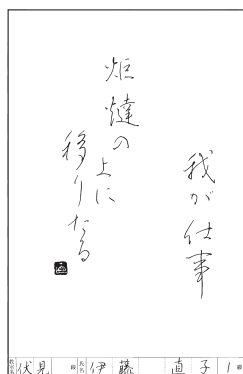 我が仕事
炬燵の上に
移りたる
教室名 伏見 級 氏名 伊藤 直子 1